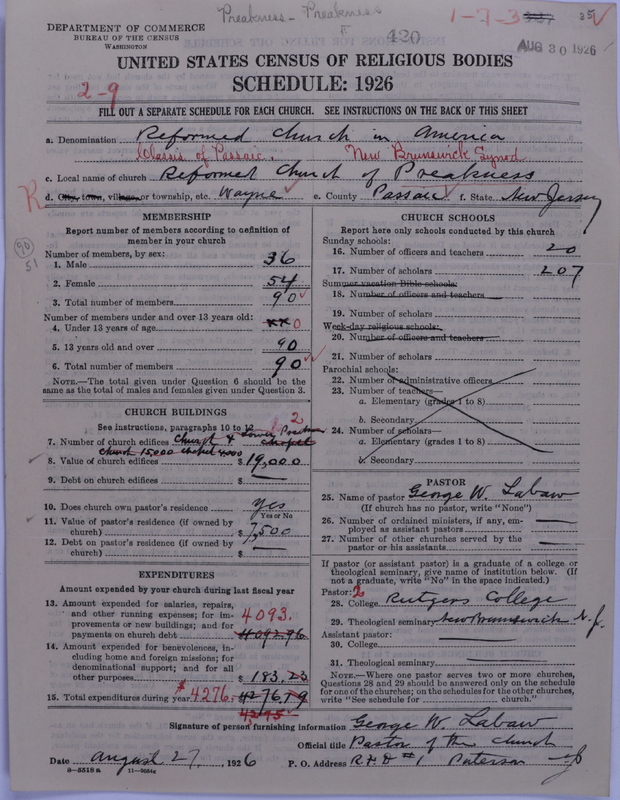 Preakness - Preakness
1-7-3
35
DEPARTMENT OF COMMERCE
BUREAU OF THE CENSUS
WASHINGTON
420
AUG 30 1926
UNITED STATES CENSUS OF RELIGIOUS BODIES
SCHEDULE: 1926
2-9
FILL OUT A SEPARATE SCHEDULE FOR EACH CHURCH. SEE INSTRUCTIONS ON THE BACK OF THIS SHEET
a. Denomination Reformed Church in America
Classis of Passaic. New Brunswick Synod
c. Local name of church Reformed Church of Preakness
R d. City, town, village, or township, etc. Wayne e. County Passaic f. State New Jersey
90
51
MEMBERSHIP
Report number of members according to definition of
member in your church
Number of members, by sex:
1. Male 36
2. Female 54
3. Total number of members 90
Number of members under and over 13 years old:
4. Under 13 years of age xx 0
5. 13 years old and over 90
6. Total number of members 90
NOTE.—The total given under Question 6 should be the
same as the total of males and females given under Question 3.
CHURCH BUILDINGS
See instructions, paragraphs 10 to 12 2
7. Number of church edifices Church & Lower Preakness Chapel
Church 15000 chapel 4000
8. Value of church edifices $ 19,000
9. Debt on church edifices $ —
10. Does church own pastor's residence yes
Yes or No
11. Value of pastor's residence (if owned by
church) $ 7,500
12. Debt on pastor's residence (if owned by
church) $ —
EXPENDITURES
Amount expended by your church during last fiscal year
13. Amount expended for salaries, repairs,
and other running expenses; for im-
provements or new buildings; and for
payments on church debt 4093.
$ 4092.96
14. Amount expended for benevolences, in-
cluding home and foreign missions; for
denominational support; and for all
other purposes $ 183.23
15. Total expenditures during year $4276. 4276.19
4295
CHURCH SCHOOLS
Report here only schools conducted by this church
Sunday schools:
16. Number of officers and teachers 20
17. Number of scholars 207
Summer vacation Bible schools:
18. Number of officers and teachers
19. Number of scholars
Week-day religious schools:
20. Number of officers and teachers
21. Number of scholars
Parochial schools:
22. Number of administrative officers
23. Number of teachers—
a. Elementary (grades 1 to 8)
b. Secondary
24. Number of scholars—
a. Elementary (grades 1 to 8)
b. Secondary
PASTOR
25. Name of pastor George W. Labaw
(If church has no pastor, write "None")
26. Number of ordained ministers, if any, em-
ployed as assistant pastors —
27. Number of other churches served by the
pastor or his assistants —
If pastor (or assistant pastor) is a graduate of a college or
theological seminary, give name of institution below. (If
not a graduate, write "No" in the space indicated.)
Pastor: 2
28. College Rutgers College
29. Theological seminary New Brunswick N. J.
Assistant pastor:
30. College —
31. Theological seminary —
NOTE.—Where one pastor serves two or more churches,
Questions 28 and 29 should be answered only on the schedule
for one of the churches; on the schedules for the other churches,
write "See schedule for ............ church."
Signature of person furnishing information George W. Labaw
Official title Pastor of the church
Date August 27, 1926 P. O. Address R.F.D #1 Paterson N.J
8—5518 a 11—9054c